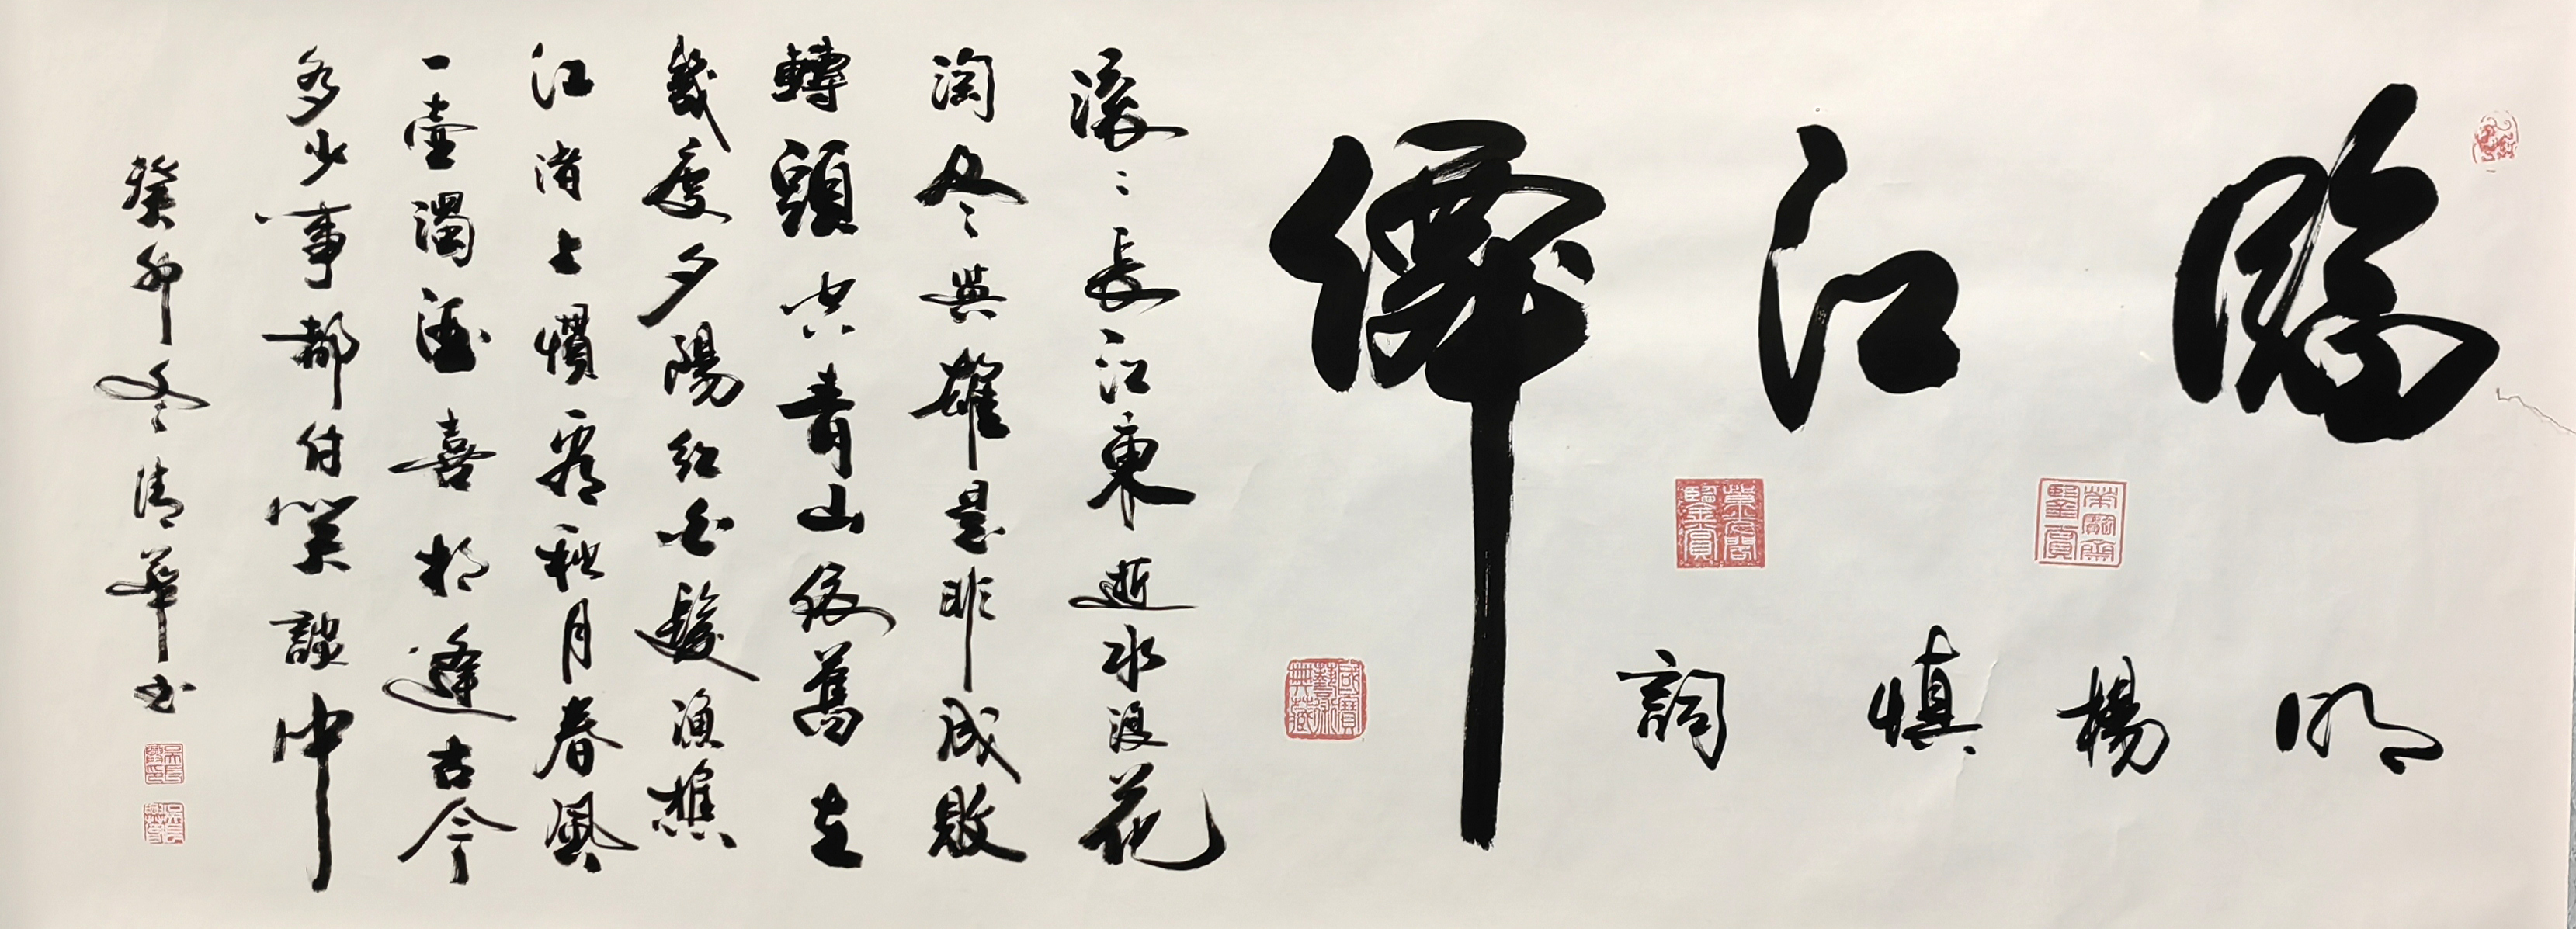 臨江僊
明楊慎詞
滚〻長江東逝水浪花
淘盡英雄是非成敗
轉頭空青山依舊在
幾度夕陽紅白髮漁樵
江渚上慣看秋月春風
一壺濁酒喜相逢古今
多少事都付笑談中
癸卯冬清華书